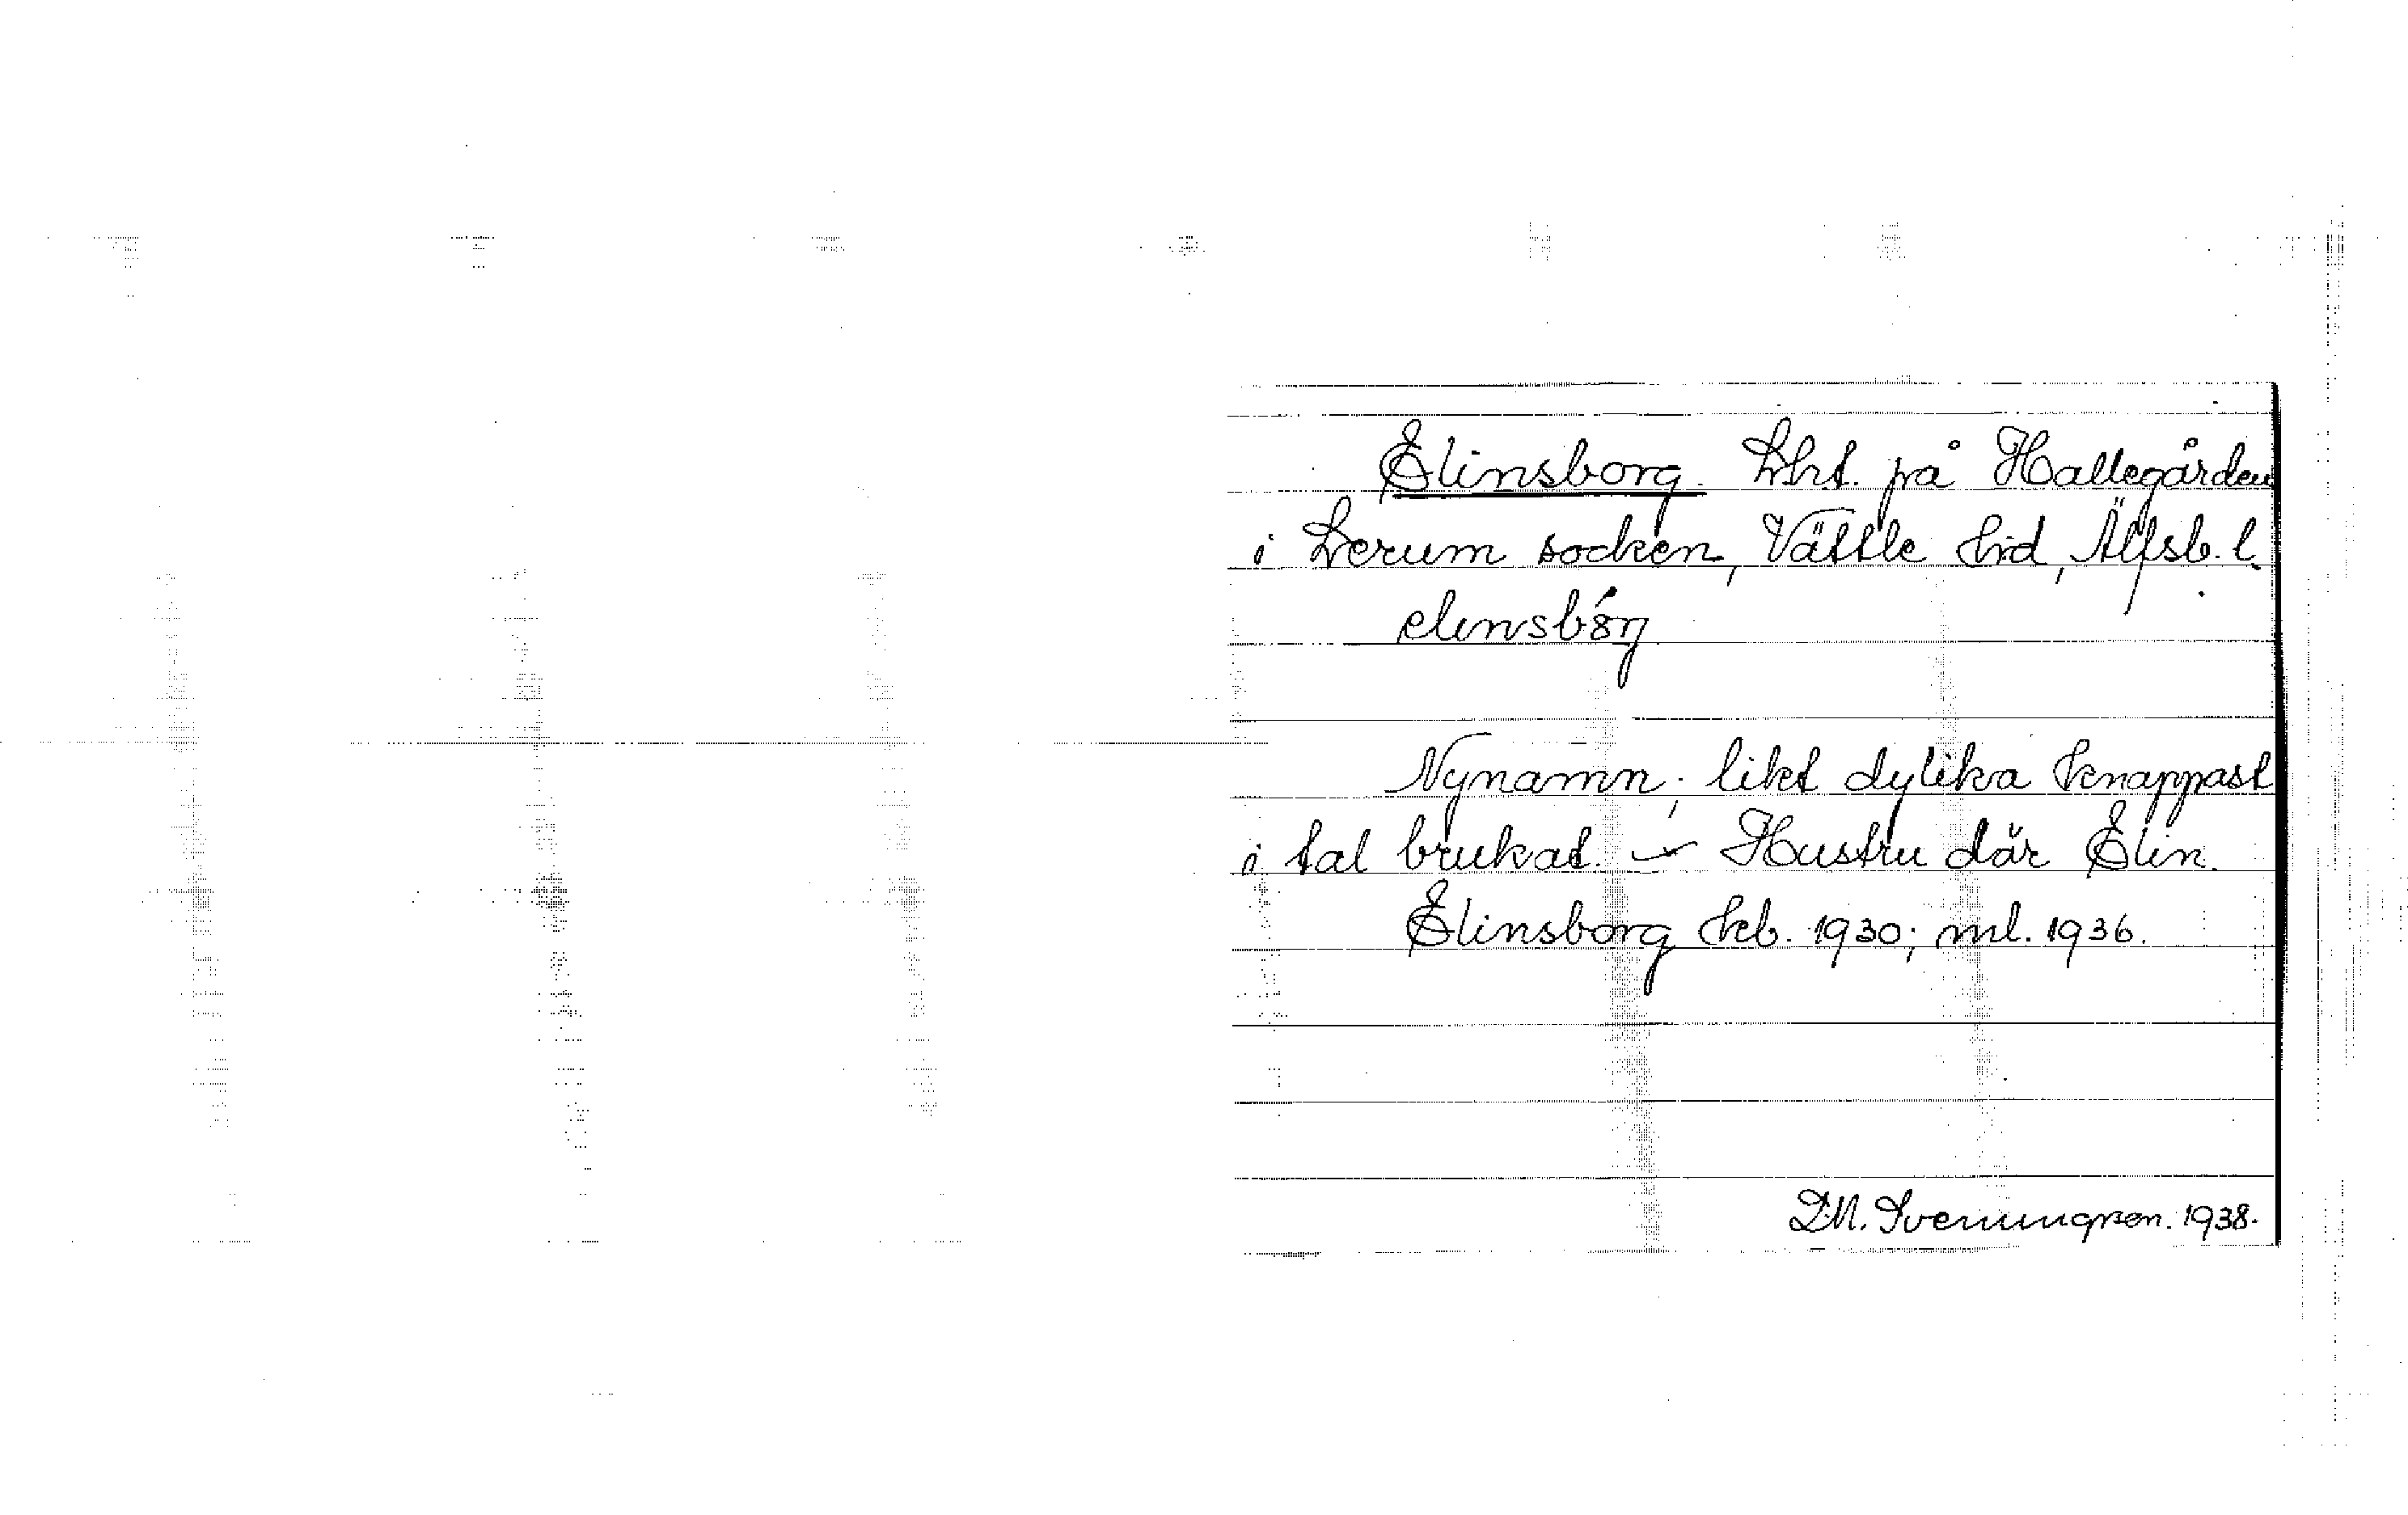 Elinsborg. Lht. på Hallegården
i Lerum socken, Vättle hrd, Älfsb. l.
elinsbórj
Nynamn; likt dylika knappast
i tal brukat. – Hustru där Elin.
Elinsborg kb. 1930; ml. 1936.
D.M. Sverningson. 1938.